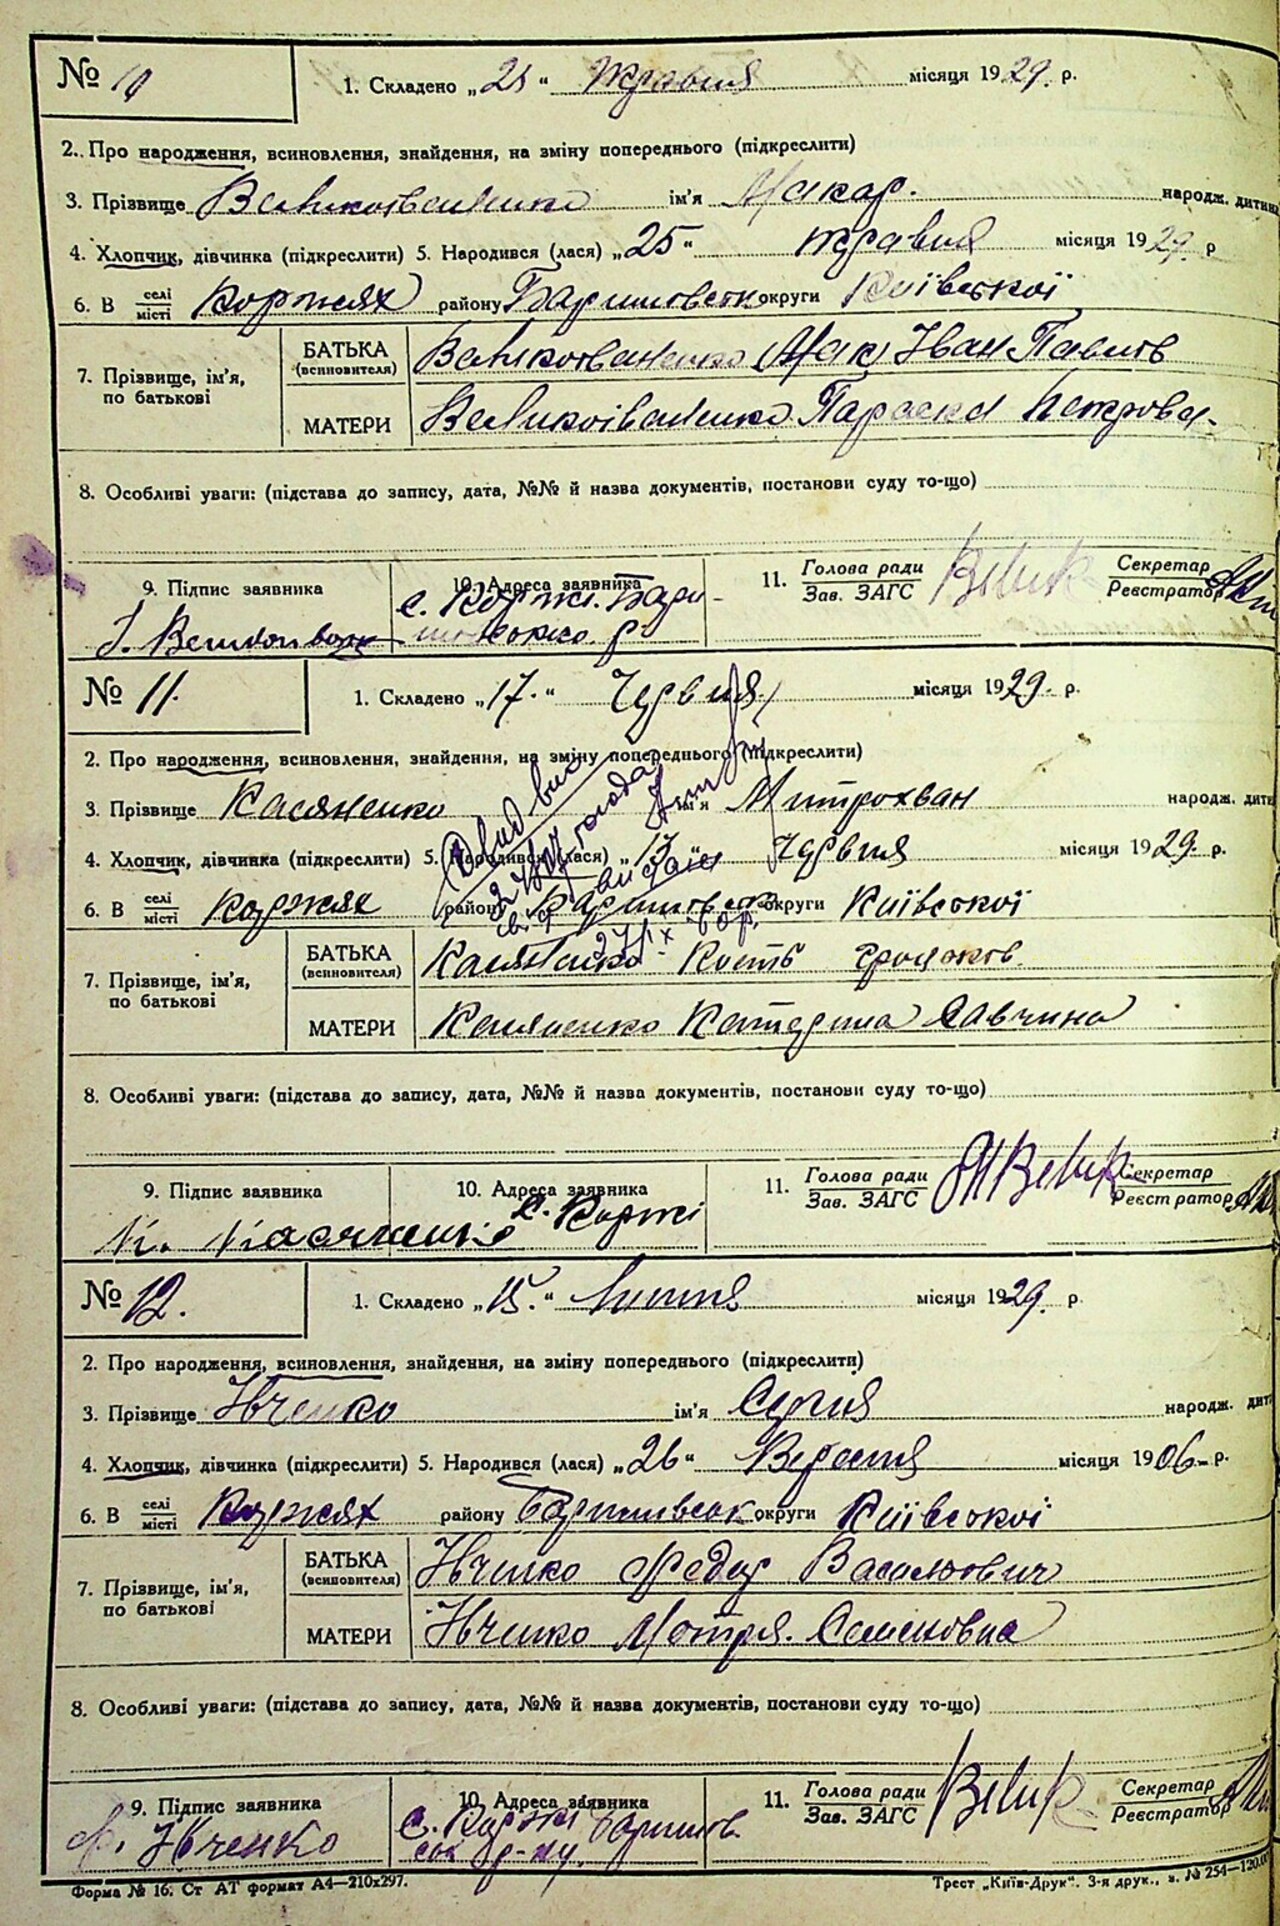 № 10
1. Складено „ 25 “ травня місяця 1929. р.
2. Про народження, всиновлення, знайдення, на зміну попереднього (підкреслити)
3. Прізвище Великоіваненко ім'я Макар. народж. дитина
4. Хлопчик, дівчинка (підкреслити) 5. Народився (лася) „ 25 “ травня місяця 1929. р
6. В селі/місті Коржях району Баришовськ округи Київської
7. Прізвище, ім'я, по батькові
БАТЬКА (всиновителя) Великоіваненко Мак Іван Павлов
МАТЕРИ Великоіваненко Параска Петрова.
8. Особливі уваги: (підстава до запису, дата, №№ й назва документів, постанови суду то-що)
9. Підпис заявника 10. Адреса заявника 11. Голова ради Велик Секретар
с. Коржі. Бари- Зав. ЗАГС Реєстратор
шовсько. р.
№ 11.
1. Складено „ 17. “ Червня місяця 1929. р.
2. Про народження, всиновлення, знайдення, на зміну попереднього (підкреслити)
3. Прізвище Касяненко ім'я Митрохван народж. дити
4. Хлопчик, дівчинка (підкреслити) 5. Народився (лася) „ 13 “ Червня місяця 1929. р.
6. В селі/місті Коржях району Баришовськ округи Київської
7. Прізвище, ім'я, по батькові
БАТЬКА (всиновителя) Касяненко Кость
МАТЕРИ Касяненко Катерина Савчина
8. Особливі уваги: (підстава до запису, дата, №№ й назва документів, постанови суду то-що)
9. Підпис заявника 10. Адреса заявника 11. Голова ради Велик Секретар
К. Касяненко с. Коржі Зав. ЗАГС Реєстратор
№ 12.
1. Складено „ 15. “ Липня місяця 1929. р.
2. Про народження, всиновлення, знайдення, на зміну попереднього (підкреслити)
3. Прізвище Івченко ім'я Сергія народж. дит
4. Хлопчик, дівчинка (підкреслити) 5. Народився (лася) „ 26 “ Вересня місяця 1906. р.
6. В селі/місті Коржях району Баришівськ округи Київської
7. Прізвище, ім'я, по батькові
БАТЬКА (всиновителя) Івченко Федор Васильович
МАТЕРИ Івченко Мотря. Семеновна
8. Особливі уваги: (підстава до запису, дата, №№ й назва документів, постанови суду то-що)
9. Підпис заявника 10. Адреса заявника 11. Голова ради Велик Секретар
Ф. Івченко с. Коржі Баришов. Зав. ЗАГС Реєстратор
ськ р-ну.
Форма № 16. Ст АТ формат А4—210x297. Трест „Київ-Друк“. 3-я друк., з. № 254—120.00